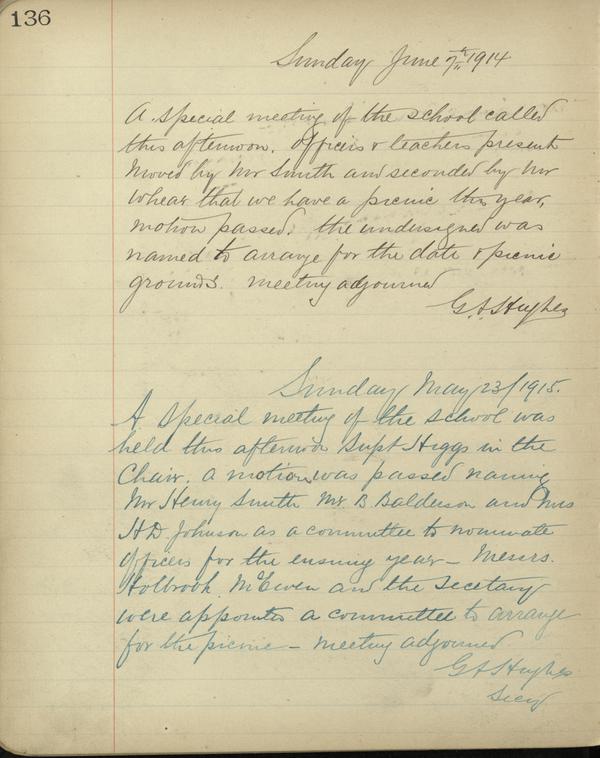 136
Sunday June 7th 1914
A special meeting of the school called
this afternoon. Officers & teachers present
Moved by Mr Smith and seconded by Mr
Whear that we have a picnic this year,
motion passed. the undersigned was
named to arrange for the date & picnic
grounds. meeting adjourned
G.A. Hughes
Sunday May 23/1915.
A special meeting of the school was
held this afternoon Supt Higgs in the
Chair. a motion was passed naming
Mr Henry Smith Mr. B. Balderson and Mrs
H D Johnson as a committee to nominate
officers for the ensuing year – Messrs.
Holbrook McEwen and the Secetary
were appointed a committee to arrange
for the picnic – meeting adjourned
G A Hughes
Secy